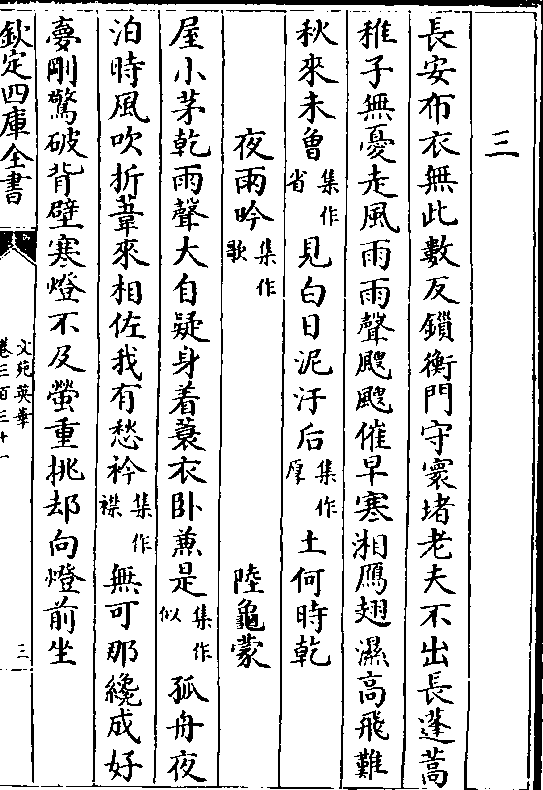 三
長安布衣無此數反鎖衡門守寰堵老夫不出長蓬蒿
稚子無憂走風雨雨聲颼颼催早寒湘鴈翅濕高飛難
秋來未曾集作省見白日泥汙后集作厚土何時乾
夜雨吟集作歌 陸龜蒙
屋小茅乾雨聲大自疑身着蓑衣卧兼是集作似孤舟夜
泊時風吹折葦來相佐我有愁衿集作襟無可那纔成好
夢剛驚破背壁寒燈不及螢重挑却向燈前坐
欽定四庫全書
文苑英華
卷三百三十一
三